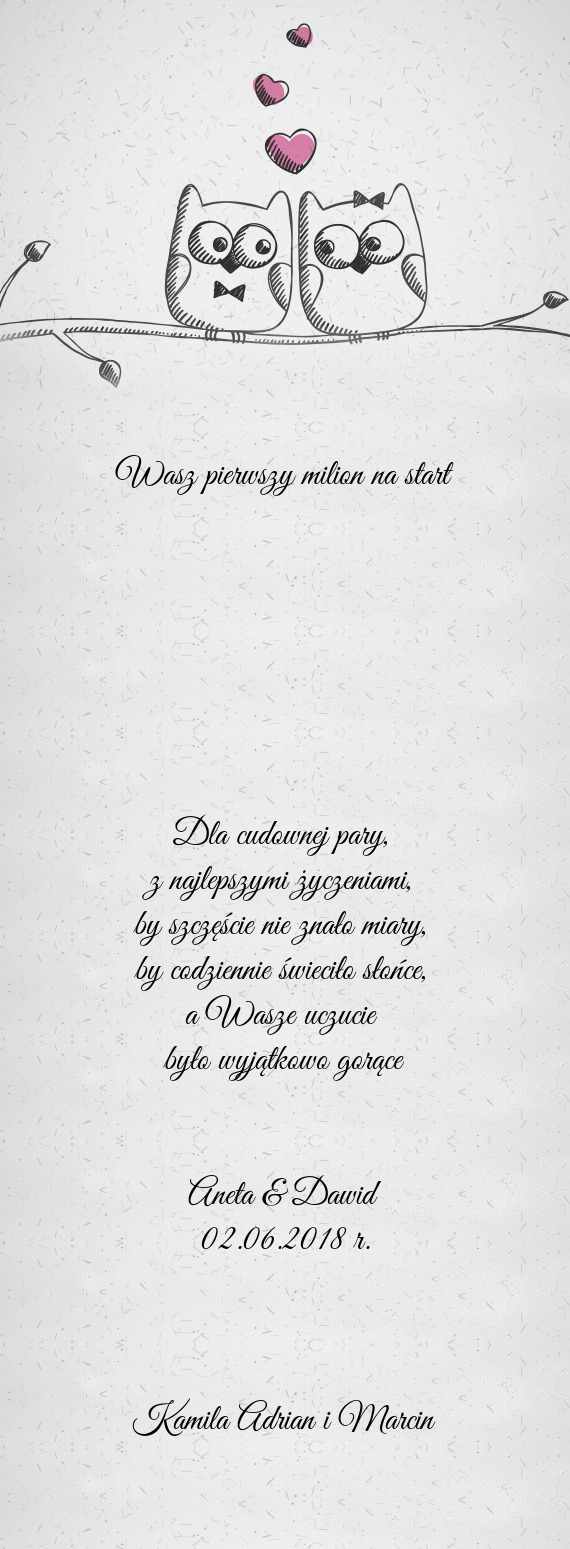 Wasz pierwszy milion na start
Dla cudownej pary,
z najlepszymi życzeniami,
by szczęście nie znało miary,
by codziennie świeciło słońce,
a Wasze uczucie
było wyjątkowo gorące
Aneta & Dawid
02.06.2018 r.
Kamila Adrian i Marcin